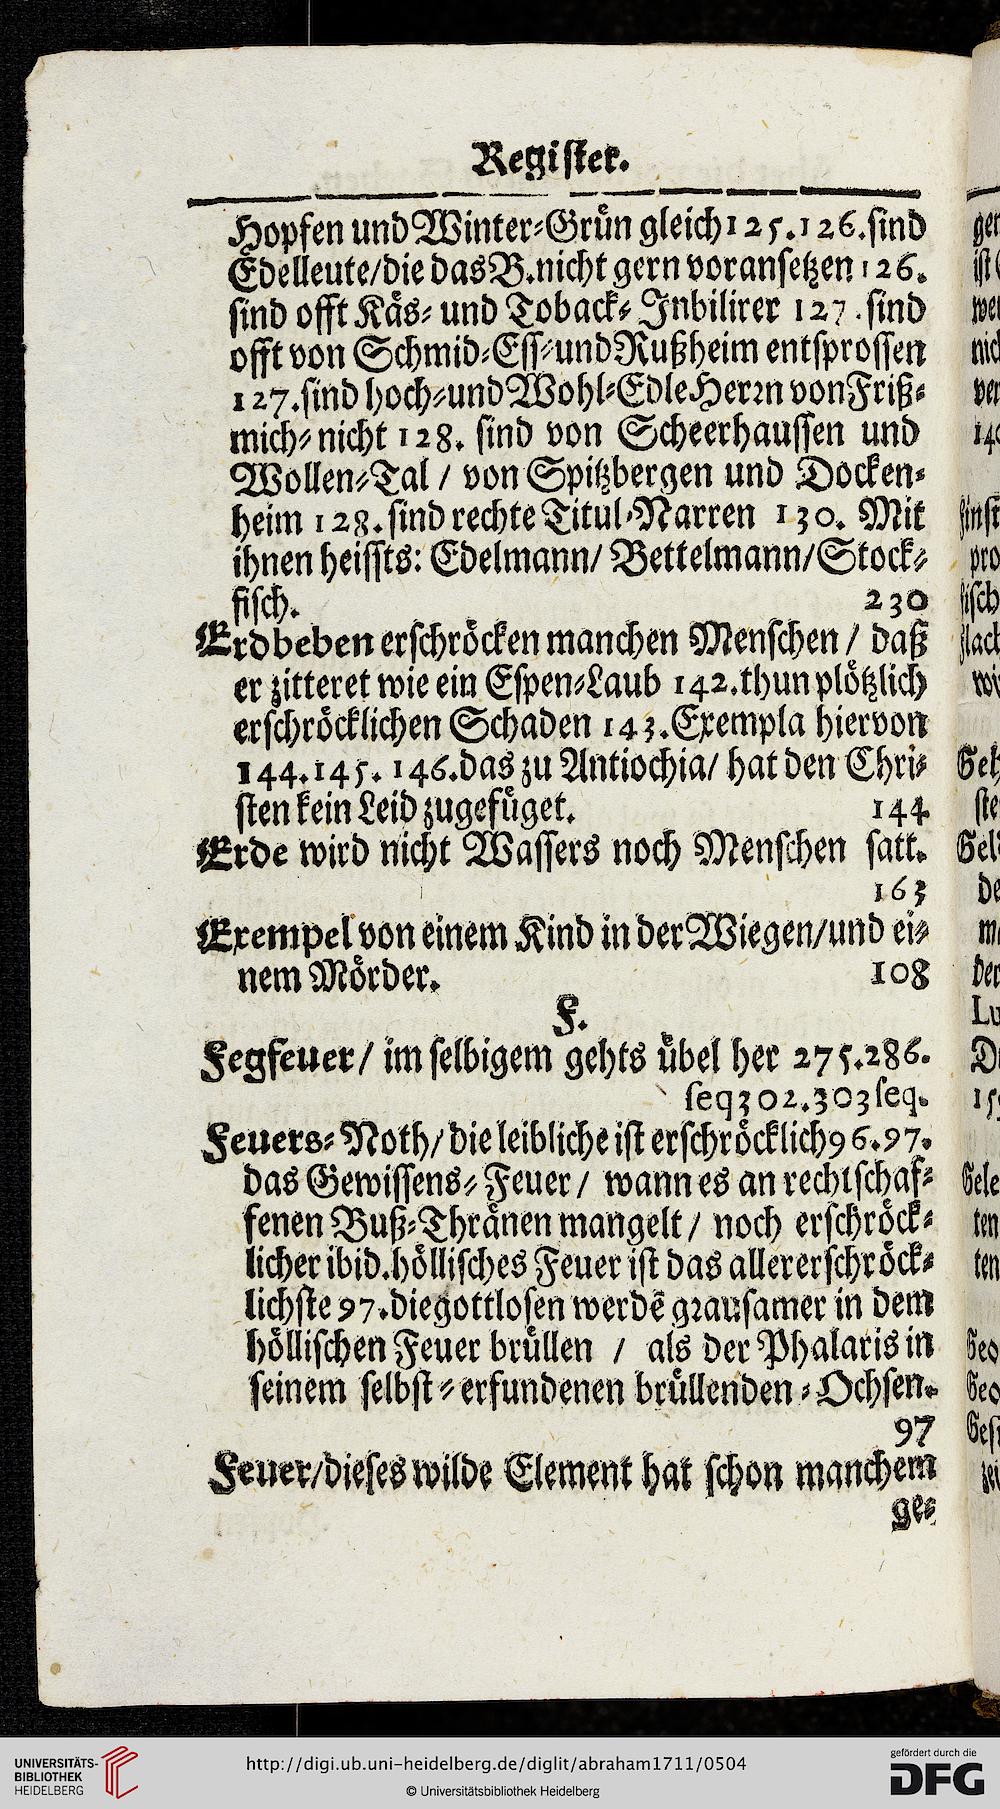 Regiſter.
Hopfen und Winter⸗Grün gleich 125. 126. ſind
Edelleute/ die das B. nicht gern voranſetzen 126.
ſind offt Käs⸗ und Toback⸗ Inbilirer 127. ſind
offt von Schmid⸗Eſſ⸗ und Rußheim entſproſſen
127. ſind hoch⸗ und Wohl⸗Edle Herꝛn von Friß⸗
mich⸗ nicht 128. ſind von Scheerhauſſen und
Wollen⸗Tal / von Spitzbergen und Docken⸗
heim 128. ſind rechte Titul⸗Narren 130. Mit
ihnen heiſſts: Edelmann/ Bettelmann/ Stock⸗
fiſch. 230
Erdbeben erſchröcken manchen Menſchen / daß
er zitteret wie ein Eſpen⸗Laub 142. thun plötzlich
erſchröcklichen Schaden 143. Exempla hiervon
144. 145. 146. das zu Antiochia/ hat den Chri⸗
ſten kein Leid zugefüget. 144
Erde wird nicht Waſſers noch Menſchen ſatt.
163
Exempel von einem Kind in der Wiegen/ und ei⸗
nem Mörder. 108
F.
Fegfeuer/ im ſelbigem gehts übel her 275. 286.
ſeq 302. 303 ſeq.
Feuers⸗Noth/ die leibliche iſt erſchröcklich 96. 97.
das Gewiſſens⸗Feuer / wann es an rechtſchaf⸗
fenen Buß⸗Thränen mangelt / noch erſchröck⸗
licher ibid. hölliſches Feuer iſt das allererſchröck⸗
lichſte 97. die gottloſen werdē gꝛauſamer in dem
hölliſchen Feuer brüllen / als der Phalaris in
ſeinem ſelbſt⸗erfundenen brüllenden⸗Ochſen.
97
Feuer/ dieſes wilde Element hat ſchon manchem
ge⸗
UNIVERSITÄTS-
BIBLIOTHEK
HEIDELBERG
http://digi.ub.uni-heidelberg.de/diglit/abraham1711/0504
© Universitätsbibliothek Heidelberg
gefördert durch die
DFG